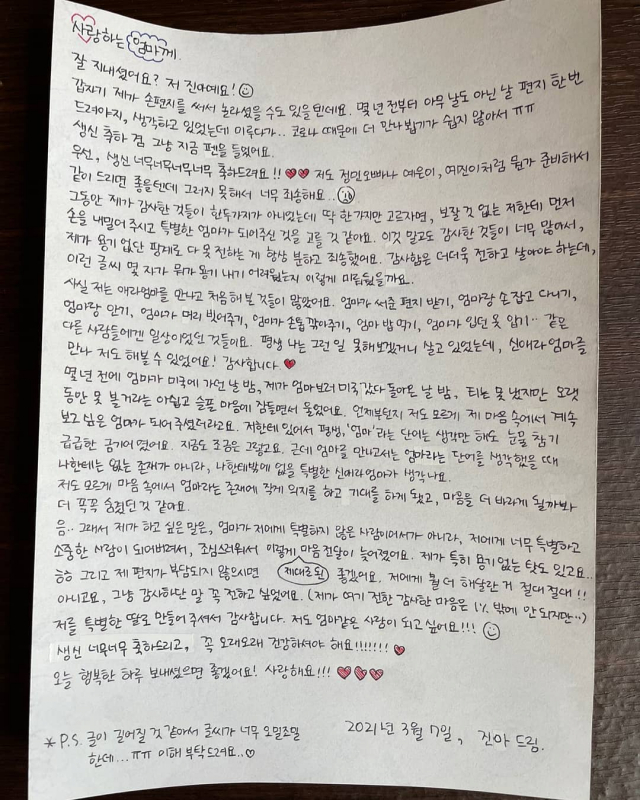 사랑하는 엄마께.
잘 지내셨어요? 저 진아예요!
갑자기 제가 손편지를 써서 놀라셨을 수도 있을텐데요. 몇 년 전부터 아무 날도 아닌 날 편지 한번
드려야지, 생각하고 있었는데 미루다가.. 코로나 때문에 더 만나뵙기가 쉽지 않아서 ㅠㅠ
생신 축하 겸 그냥 지금 펜을 들었어요.
우선, 생신 너무너무너무너무 축하드려요!! ♥♥ 저도 정민오빠나 예은이, 예진이처럼 뭔가 준비해서
같이 드리면 좋을텐데 그러지 못해서 너무 죄송해요..
그동안 제가 감사한 것들이 한두가지가 아니었는데 딱 한가지만 고르자면, 보잘 것 없는 저한테 먼저
손을 내밀어 주시고 특별한 엄마가 되어주신 것을 고를 것 같아요. 이것 말고도 감사한 것들이 너무 많아서,
제가 용기 없단 핑계로 다 못 전하는 게 항상 분하고 죄송했어요. 감사함은 더더욱 전하고 살아야 하는데,
이런 글씨 몇 자가 뭐가 용기 내기 어려웠는지 이렇게 미뤄뒀을까요.
사실 저는 애라엄마를 만나고 처음 해본 것들이 많았어요. 엄마가 써준 편지 받기, 엄마랑 손 잡고 다니기,
엄마랑 안기, 엄마가 머리 빗어주기, 엄마가 손톱 깎아주기, 엄마 밥 먹기, 엄마가 입던 옷 입기.. 같은
다른 사람들에겐 일상이었던 것들이요. 평생 나는 그런 일 못해보겠거니 살고 있었는데, 신애라 엄마를
만나 저도 해볼 수 있었어요! 감사합니다. ♥
몇 년 전에 엄마가 미국에 가던 날 밤, 제가 엄마보러 미국 갔다 돌아온 날 밤, 티는 못 냈지만 오랫
동안 못 볼거라는 아쉽고 슬픈 마음에 잠들면서 울었어요. 언제부턴지 저도 모르게 제 마음 속에서 계속
보고 싶은 엄마가 되어 주셨더라고요. 저한테 있어서 평생, '엄마'라는 단어는 생각만 해도 눈물 참기
급급한 금기어였어요. 지금도 조금은 그렇고요. 근데 엄마를 만나고서는 엄마라는 단어를 생각했을 때
나한테는 없는 존재가 아니라, 나한테밖에 없을 특별한 신애라엄마가 생각나요.
저도 모르게 마음 속에서 엄마라는 존재에 작게 의지를 하고 기대를 하게 됐고, 마음을 더 바라게 될까봐
더 꼭꼭 숨겼던 것 같아요.
음.. 그래서 제가 하고 싶은 말은, 엄마가 저에게 특별하지 않은 사람이어서가 아니라, 저에게 너무 특별하고
소중한 사람이 되어버려서, 조심스러워서 이렇게 마음 전달이 늦어졌어요. 제가 특히 용기 없는 탓도 있고요..
하하 그리고 제 편지가 부담되지 않으시면 제대로된 좋겠어요. 저에게 뭘 더 해달란 거 절대 절대!!
아니고요, 그냥 감사하단 말 꼭 전하고 싶었어요. (제가 여기 전한 감사한 마음은 1% 밖에 안 되지만..)
저를 특별한 딸로 만들어 주셔서 감사합니다. 저도 엄마같은 사람이 되고 싶어요!!!
생신 너무너무 축하드리고, 꼭 오래오래 건강하셔야 해요!!!!!!! ♥
오늘 행복한 하루 보내셨으면 좋겠어요! 사랑해요!!! ♥♥♥
2021년 3월 7일, 진아 드림.
*P.S. 글이 길어질 것 같아서 글씨가 너무 오밀조밀
한데...ㅠㅠ 이해 부탁드려요..♡